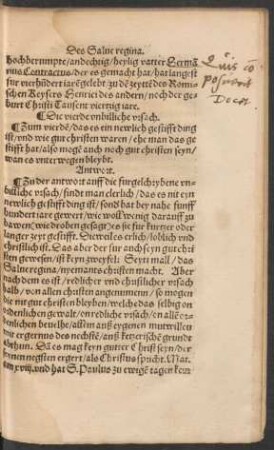 Des Salue regina.
hochberumpte/andechtig/heylig vatter Hermā
nus Contractus/der es gemacht hat/hat langest
fur vierhūdert iarē gelebt zu dē zeytē des Romi-
schen Keysers Henrici des andern/noch der ge-
burt Christi Tausent viertzig iare.
¶Die vierde vnbilliche vrsach.
¶Zum vierdē/das es ein newlich gestifft ding
ist/vnd wir gut christen waren/ehe man das ge
stifft hat/also mogē auch noch gut christen seyn/
wan es vnterwegen bleybt.
Antwort.
¶Zu der antwort auff die
vrsach/findt man clerlich/das es nit eyn
newlich gestifft ding ist/sond hat bey nahe funff
hundert iare gewert/wie woll wenig darauff zu
bawen/wie droben gesagt/es sie fur kurtzer oder
langer zeyt gestifft. Dieweil es erlich/loblich vnd
christlich ist. Das aber der fur auch seyn gut chri
sten gewesen/ist keyn zweyfel: Seyn mall/das
Salue regina/nyemants christen macht. Aber
nach dem es ist/redlicher vnd christlicher vrsach
halb/von allen christen angenummen/so mogen
die nit gut christen bleyben/welche das selbig on
ordenlichen gewalt/on redliche vrsach/on allē or
denlichen beuelhe/allein auß eygenen mutwillen
mit ergernus des nechstē/auß ketzerischē grundt
abthun. Dā es mag keyn gutter Christ seyn/der
seynen negsten ergert/als Christus spricht. Mat.
am xviij. vnd hat S. Paulus zu ewigē tagen keyn
Quis
posuerit